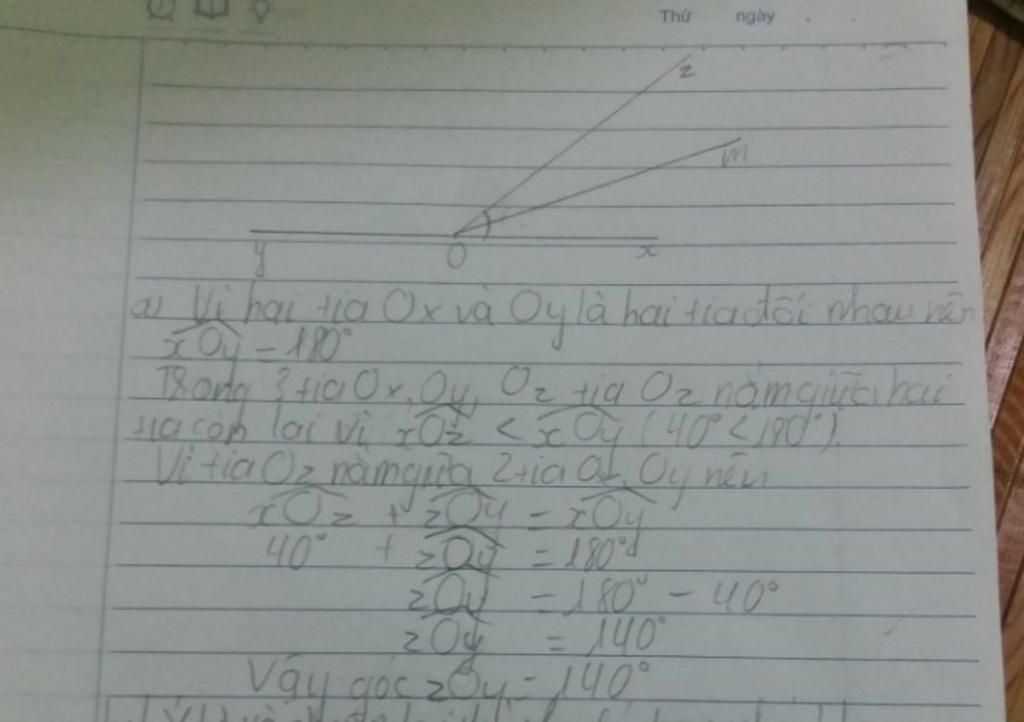 Thứ ngày
z
m
y O x
a) Vì hai tia Ox và Oy là hai tia đối nhau nên
xOy = 180°
Trong 3 tia Ox, Oy, Oz tia Oz nằm giữa hai
tia còn lại vì xOz < xOy (40° < 180°).
Vì tia Oz nằm giữa 2 tia Ox, Oy nên
xOz + zOy = xOy
40° + zOy = 180°
zOy = 180° - 40°
zOy = 140°
Vậy góc zOy = 140°